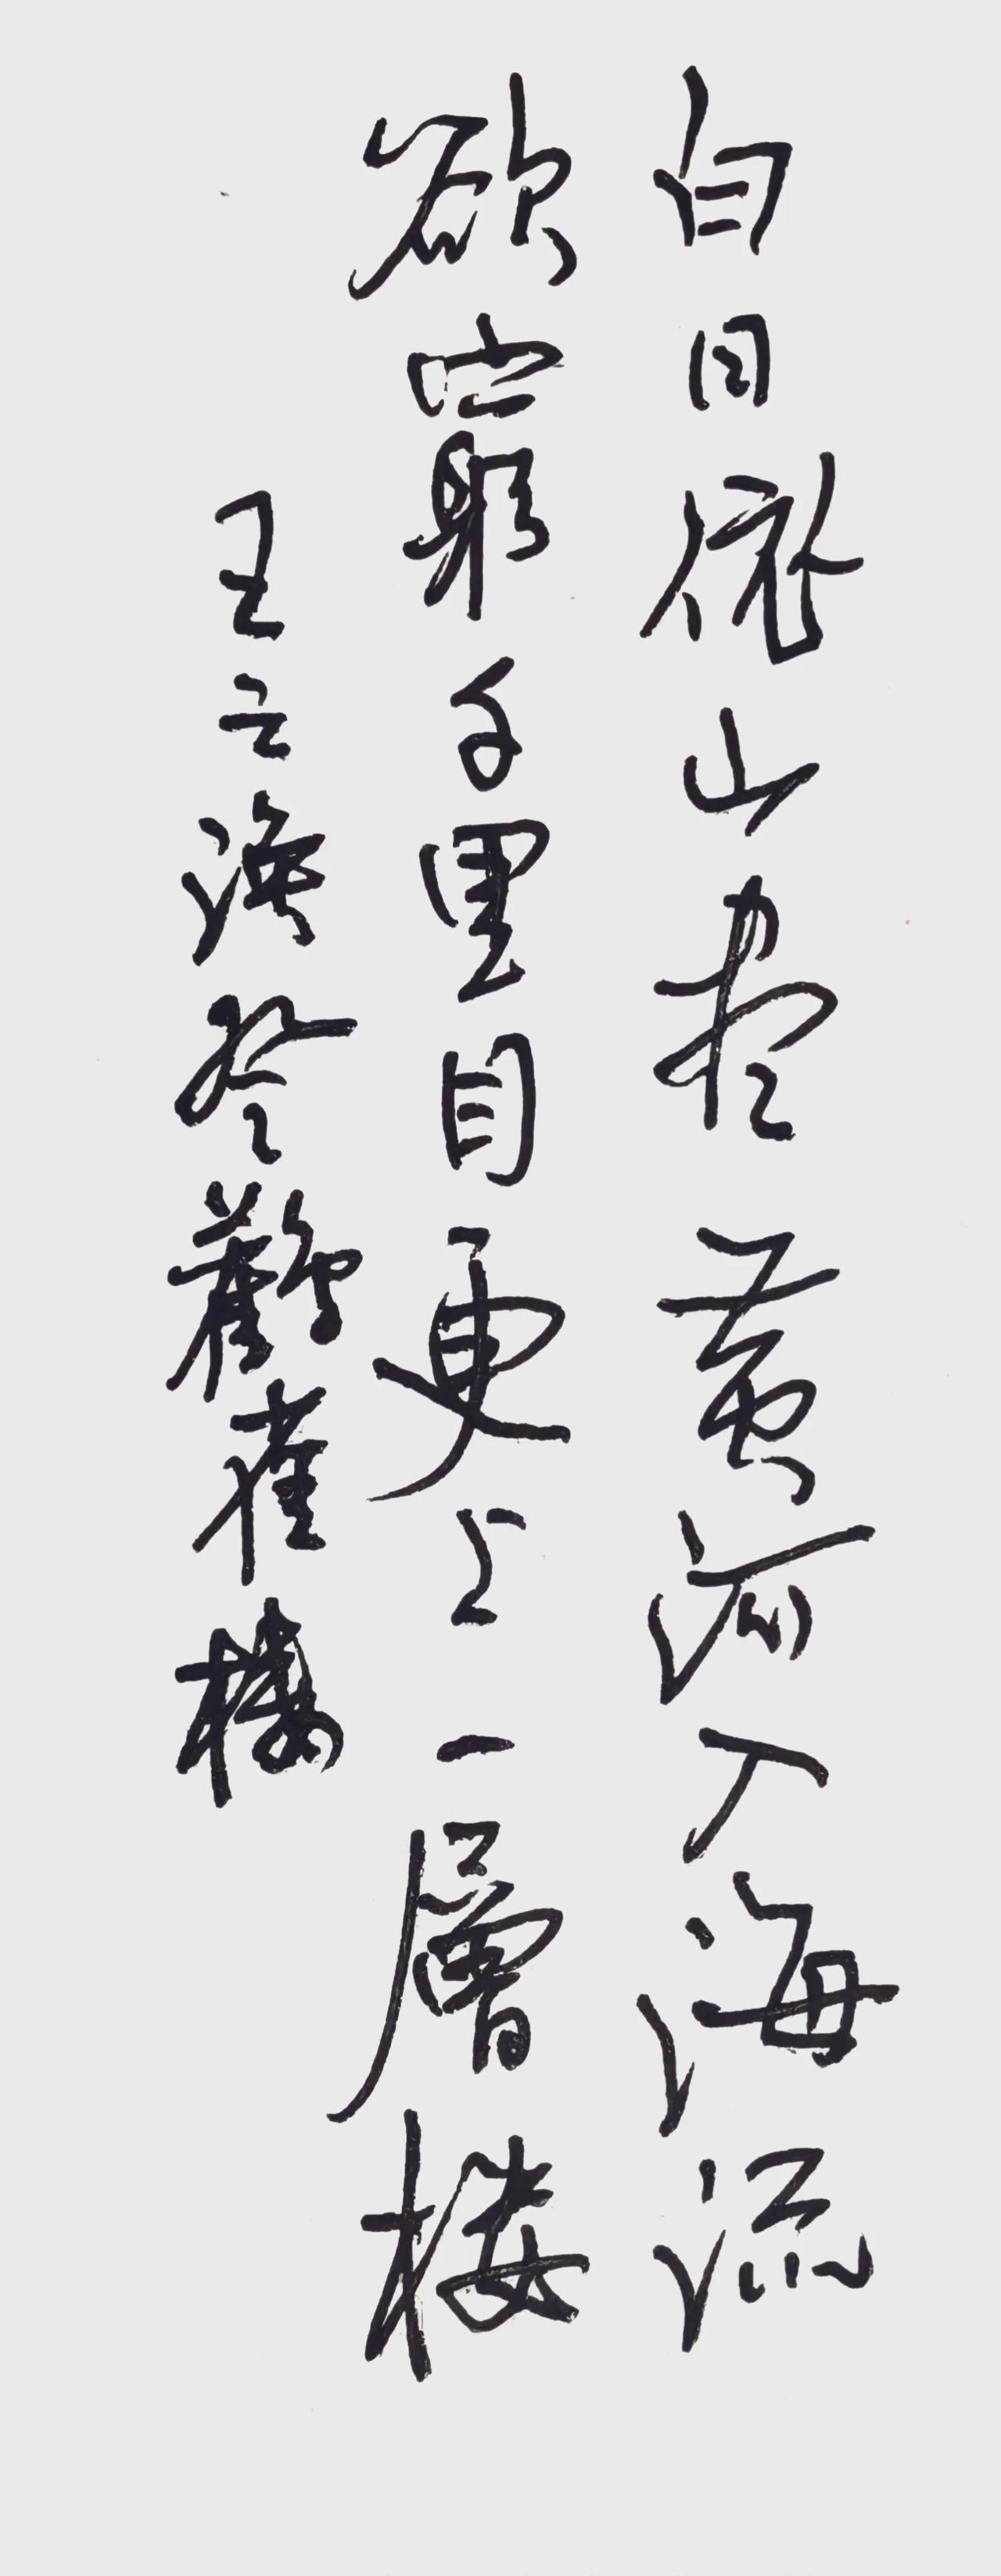 白日依山尽黄河入海流
欲窮千里目更上一層楼
王之涣登鸛雀楼